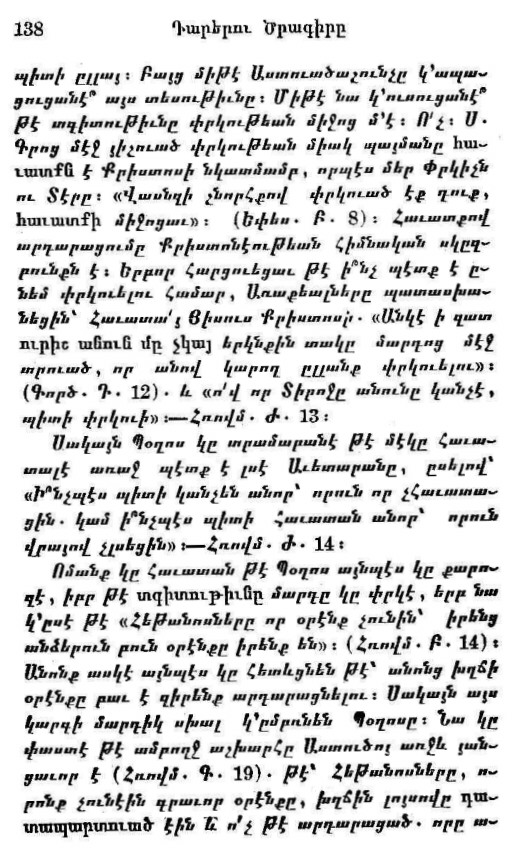 138 Դարերու Ծրագիրը
պիտի ըլլայ։ Բայց միթէ Աստուածաշունչը կ՚ապա–
ցուցանէ՞ այս տեսութիւնը։ Միթէ նա կ՚ուսուցանէ՞
թէ տգիտութիւնը փրկութեան միջոց մ՚է։ Ո՛չ։ Ս.
Գրոց մէջ յիշուած փրկութեան միակ պայմանը հա–
ւատքն է Քրիստոսի նկատմամբ, որպէս մեր Փրկիչն
ու Տէրը։ «Վասնզի շնորհքով փրկուած էք դուք,
հաւատքի միջոցաւ»։ (Եփես. Բ. 8)։ Հաւատքով
արդարացումը Քրիստոնէութեան հիմնական սկըզ–
բունքն է։ Երբոր հարցուեցաւ թէ ի՞նչ պէտք է ը–
նեմ փրկուելու համար, Առաքեալները պատասխա–
նեցին՝ Հաւատա՛յ Յիսուս Քրիստոսի. «Անկէ ի զատ
ուրիշ անուն մը չկայ երկնքին տակը մարդոց մէջ
տրուած, որ անով կարող ըլլանք փրկուելու»։
(Գործ. Դ. 12). և «ո՛վ որ Տիրոջը անունը կանչէ,
պիտի փրկուի»։—Հռովմ. Ժ. 13։
Սակայն Պօղոս կը տրամաբանէ թէ մէկը հաւա–
տալէ առաջ պէտք է լսէ Աւետարանը, ըսելով՝
«Ի՞նչպէս պիտի կանչեն անոր՝ որուն որ չհաւատա–
ցին. կամ ի՞նչպէս պիտի հաւատան անոր՝ որուն
վրայով չլսեցին»։—Հռովմ. Ժ. 14։
Ոմանք կը հաւատան թէ Պօղոս այնպէս կը քարո–
զէ, իբր թէ տգիտութիւնը մարդը կը փրկէ, երբ նա
կ՚ըսէ թէ «Հեթանոսները որ օրէնք չունին՝ իրենց
անձերուն բուն օրէնքը իրենք են»։ (Հռովմ. Բ. 14)։
Անոնք ասկէ այնպէս կը հետևցնեն թէ՝ անոնց խղճի
օրէնքը բաւ է զիրենք արդարացնելու։ Սակայն այս
կարգի մարդիկ սխալ կ՚ըմբռնեն Պօղոսը։ Նա կը
փաստէ թէ ամբողջ աշխարհը Աստուծոյ առջև յան–
ցաւոր է (Հռովմ. Գ. 19). թէ՝ Հեթանոսները, ո–
րոնք չունէին գրաւոր օրէնքը, խղճին լոյսովը դա–
տապարտուած էին և ո՛չ թէ արդարացած. որը ա–